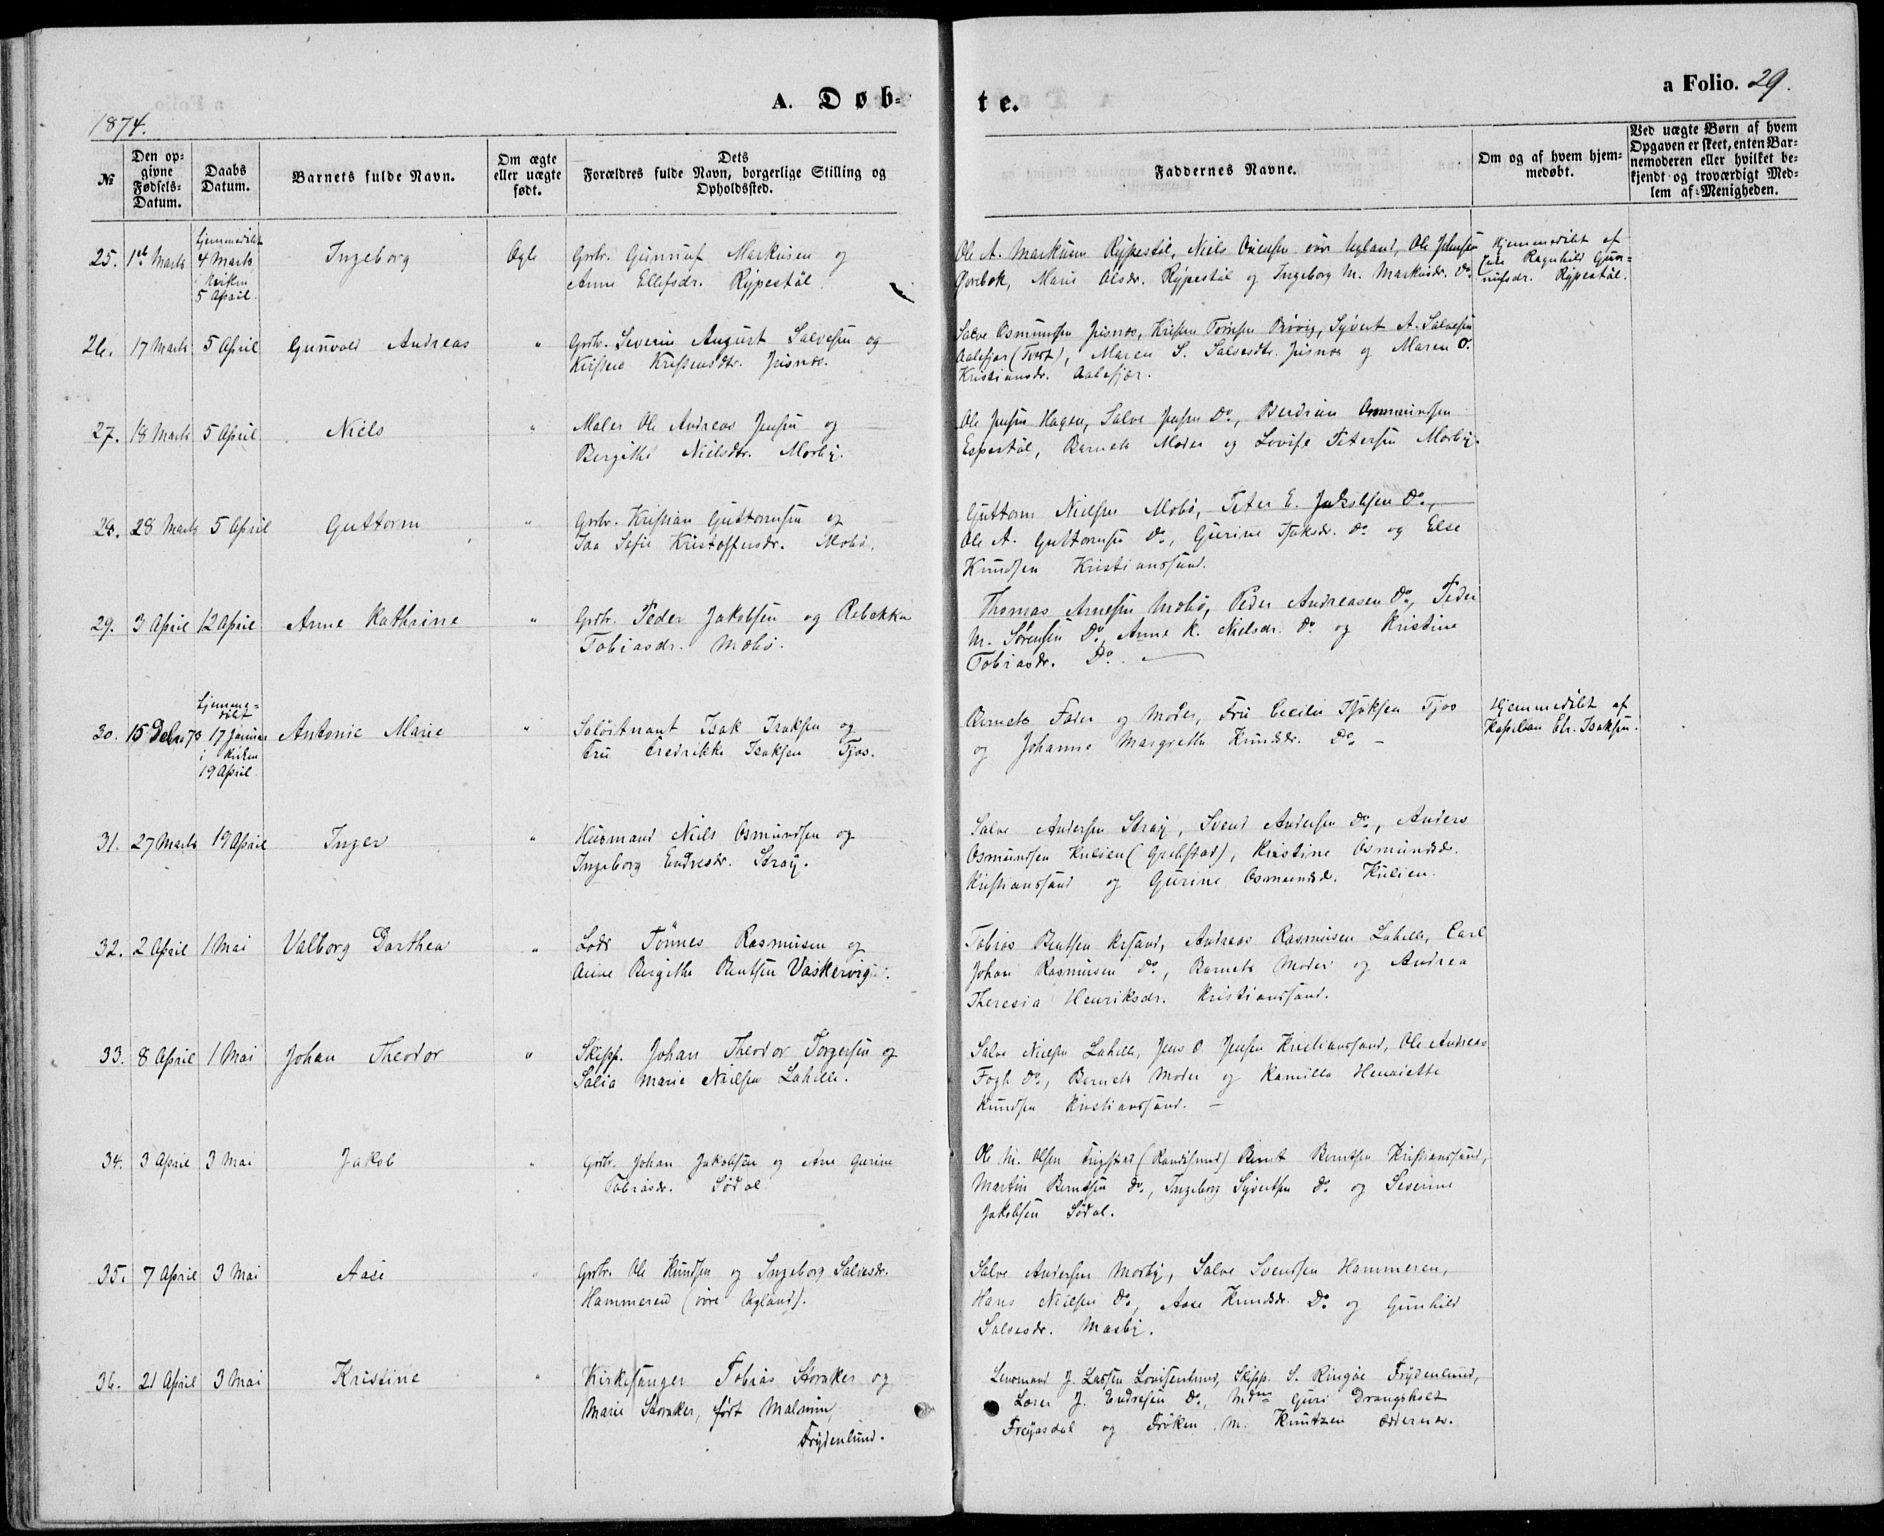 A. Døb-
te.
a Folio. 29.
1874.
№
Den op-
givne
Fødsels-
Datum.
Daabs
Datum.
Barnets fulde Navn.
Om ægte
eller uægte
født.
Dets
Forældres fulde Navn, borgerlige Stilling og
Opholdssted.
Faddernes Navne.
Om og af hvem hjem-
medøbt.
Ved uægte Børn af hvem
Opgaven er skeet, enten Bar-
nemoderen eller hvilket be-
kjendt og troværdigt Med-
lem af Menigheden.
25. 1ste Marts
hjemmedöbt
4 Marts
i Kirken
5 April
Ingeborg
Ægte
Grbr. Gunnuf Markusen og
Anne Ellefsdr. Rypestöl.
Ole A. Markusen Rypestöl, Niels övre Uglund, Ole Jensen
Marie Olsdr. Rypestöl og Ingeborg M. Markusdr. Do.
Hjemmedöbt af
Ragnhild Gun-
nufsdr. Rypestöl.
26. 17 Marts 5 April Gunvald Andreas " Grbr. Severin August Salvesen og
Kirsten Kristensdtr. Jusnes.
Salve Osmundsen Jusnes, Kristen Tönnesen Sÿvert A. Salvesen
Aalefjær (Tveit), Maren S. Salvesdtr. Jusnes og Maren O.
Kristiansdr. Aalefjær.
27. 18 Marts 5 April Niels " Maler Ole Andreas Jensen og
Bergithe Nielsdtr. Mosby.
Ole Jensen Hagen, Salve Jensen Do., Berdines Ommundsen
Espestöl, Barnets Moder og Lovise Petersen Mosby.
28. 28 Marts 5 April Guttorm " Grbr. Kristian Guttormsen og
Sofie Kristoffersdr. Mobö.
Guttorm Nielsen Mobö, Peter E. Jakobsen Do.,
Ole A. Guttormsen Do., Gurine Isaksdr. Do. og Else
Knudsen Kristianssand.
29. 3 April 12 April Anne Kathrine " Grbr. Peder Jakobsen og Rebekka
Tobiasdr. Mobö.
Thomas Arnesen Mobö, Peder Andreasen Do, Peder
M. Sörensen Do., Anne K. Nielsdr. Do. og Kristine
Tobiasdr. Do.
30. 15 Debr 73
hjemme-
döbt
17 Januar
i Kirken
19 April
Antonie Marie " Isak Isaksen og
Fru Fredrikke Isaksen Tjos.
Barnets Fader og Moder, Fru Cecilie Isaksen Tjos
og Johanne Margrethe Knudsdr. Do. –
Hjemmedöbt af
Kapellan Isaksen.
31. 27 Marts 19 April Inger " Husmand Niels Osmundsen og
Ingeborg Endresdr. Stray.
Salve Andersen Stray, Svend Andersen Do., Anders
Osmundsen Kulien, Kristine Osmundsdr.
Kristianssand og Gurine Osmundsdr. Kulien.
32. 2 April 1 Mai Valborg Dorthea " Lods Tönnes Rasmusen og
Anne Bergithe Bentsen Vaskervig.
Tobias Bentsen Krsand, Andreas Rasmusen Lahelle, Carl
Johan Rasmusen Do., Barnets Moder og Andrea
Theresia Henriksdr. Kristianssand.
33. 8 April 1 Mai Johan Theodor " Skipp. Johan Theodor Torgersen og
Marie Nielsen Lahelle.
Salve Nielsen Lahelle, Jens O Jensen Kristianssand, Ole Andreas
Fogh Do., Barnets Moder og Kamilla Henriette
Knudsen Kristianssand. –
34. 3 April 3 Mai Jakob " Grbr. Johan Jakobsen og Ane Gurine
Tobiasdr. Södal
Ole M. Olsen Frigstad (Randösund) Bernt Berntsen Kristianssand,
Martin Berntsen Do., Ingeborg Syvertsen Do. og Severine
Jakobsen Södal.
35. 7 April 3 Mai Aase " Grbr. Ole Knudsen og Ingeborg Salvesdr.
Hammeren (övre Ugland).
Salve Andersen Mosby, Salve Svendsen Hammeren,
Hans Nielsen Do., Aase Knudsdr. Do. og Gunhild
Salvesdr. Mosby.
36. 21 April 3 Mai Kristine " Kirkesanger Tobias Storaker og
Marie Storaker, födt Malmin,
Frydenlund.
Lensmand J. Lassen Lovisenlund, Skipp. S. Ringøe Frydenlund,
Lærer J. Endresen Do., Mdm Guri Drangsholt
Fröken M. Knutzen Oddernes.